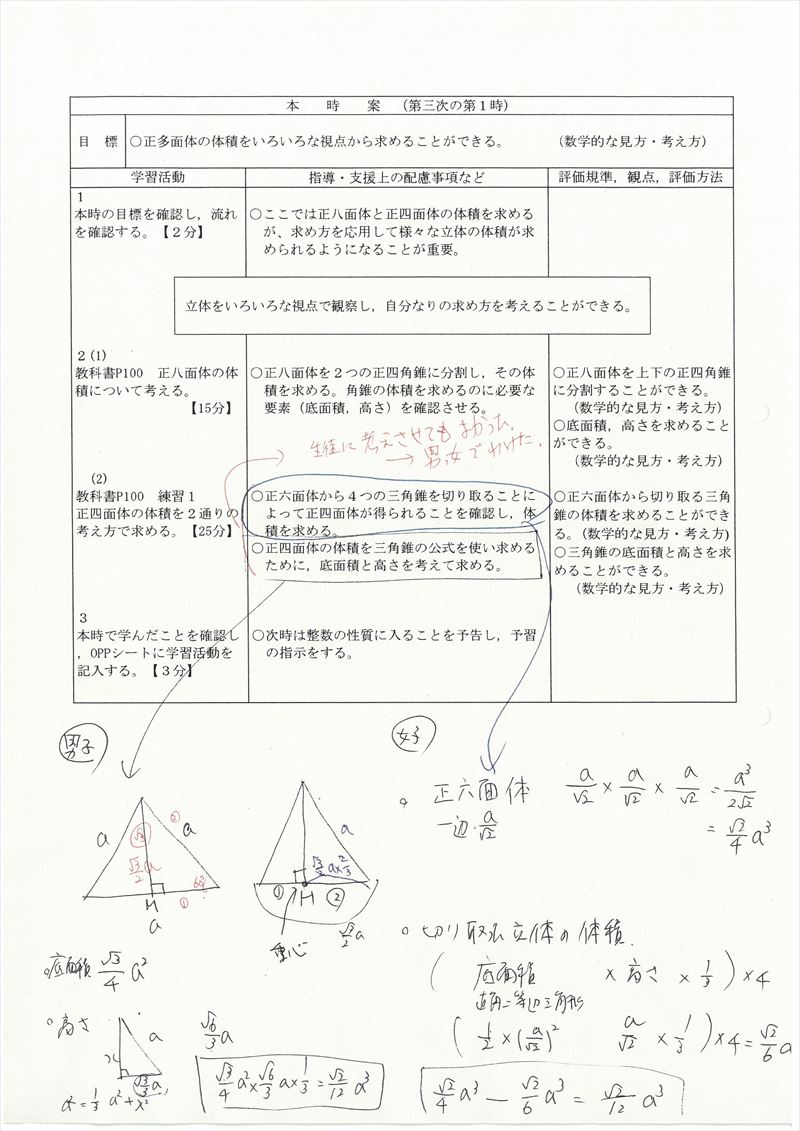 本　時　案　（第三次の第１時）
目　標
○正多面体の体積をいろいろな視点から求めることができる。　（数学的な見方・考え方）
学習活動
指導・支援上の配慮事項など
評価規準，観点，評価方法
1
本時の目標を確認し，流れ
を確認する。【２分】
○ここでは正八面体と正四面体の体積を求める
が，求め方を応用して様々な立体の体積が求
められるようになることが重要。
立体をいろいろな視点で観察し，自分なりの求め方を考えることができる。
2 (1)
教科書P100　正八面体の体
積について考える。
【15分】
○正八面体を２つの正四角錐に分割し，その体
積を求める。角錐の体積を求めるのに必要な
要素（底面積，高さ）を確認させる。
○正八面体を上下の正四角錐
に分割することができる。
（数学的な見方・考え方）
○底面積，高さを求めること
ができる。
（数学的な見方・考え方）
生徒に考えさせてもよかった。
→ 男女でわけた。
(2)
教科書P100　練習１
正四面体の体積を２通りの
考え方で求める。【25分】
○正六面体から４つの三角錐を切り取ることに
よって正四面体が得られることを確認し，体
積を求める。
○正四面体の体積を三角錐の公式を使い求める
ために，底面積と高さを考えて求める。
○正六面体から切り取る三角
錐の体積を求めることができ
る。（数学的な見方・考え方）
○三角錐の底面積と高さを求
めることができる。
（数学的な見方・考え方）
3
本時で学んだことを確認し
，OPPシートに学習活動を
記入する。【３分】
○次時は整数の性質に入ることを予告し，予習
の指示をする。
男子
a
②
a
√3
√3/2 a
60°
M
①
a
a
√3/2 a×2/3
①
H
②
√3/2 a
重心
○底面積 √3/4 a²
○高さ
x
a
√3/3 a
a² = 1/3 a² + x²
√6/3 a
√3/4 a² × √6/3 a × 1/3 = √2/12 a³
女子
○ 正六面体
一辺 a/√2
a/√2 × a/√2 × a/√2 = a³/2√2
= √2/4 a³
○ 切り取る立体の体積
( 底面積 × 高さ × 1/3 ) × 4
直角二等辺三角形
( 1/2 × (a/√2)² a/√2 × 1/3 ) × 4 = √2/6 a
√2/4 a³ − √2/6 a³ = √2/12 a³